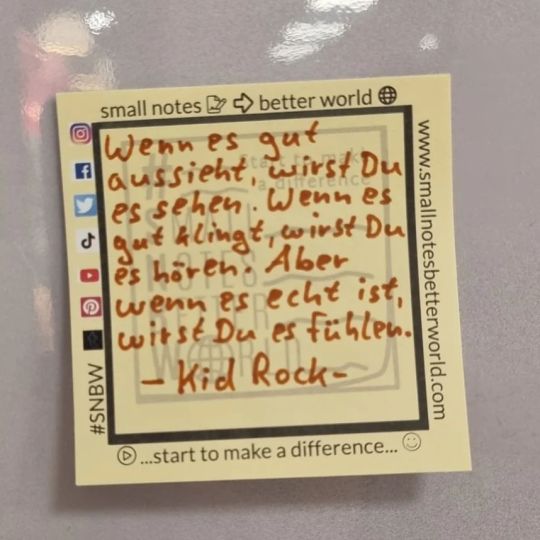 small notes better world
Wenn es gut
aussieht, wirst Du
es sehen. Wenn es
gut klingt, wirst Du
es hören. Aber
wenn es echt ist,
wirst Du es fühlen.
- Kid Rock -
www.smallnotesbetterworld.com
#SNBW
...start to make a difference...
Start to make
a difference
#
SMALL
NOTES
BETTER
WORLD